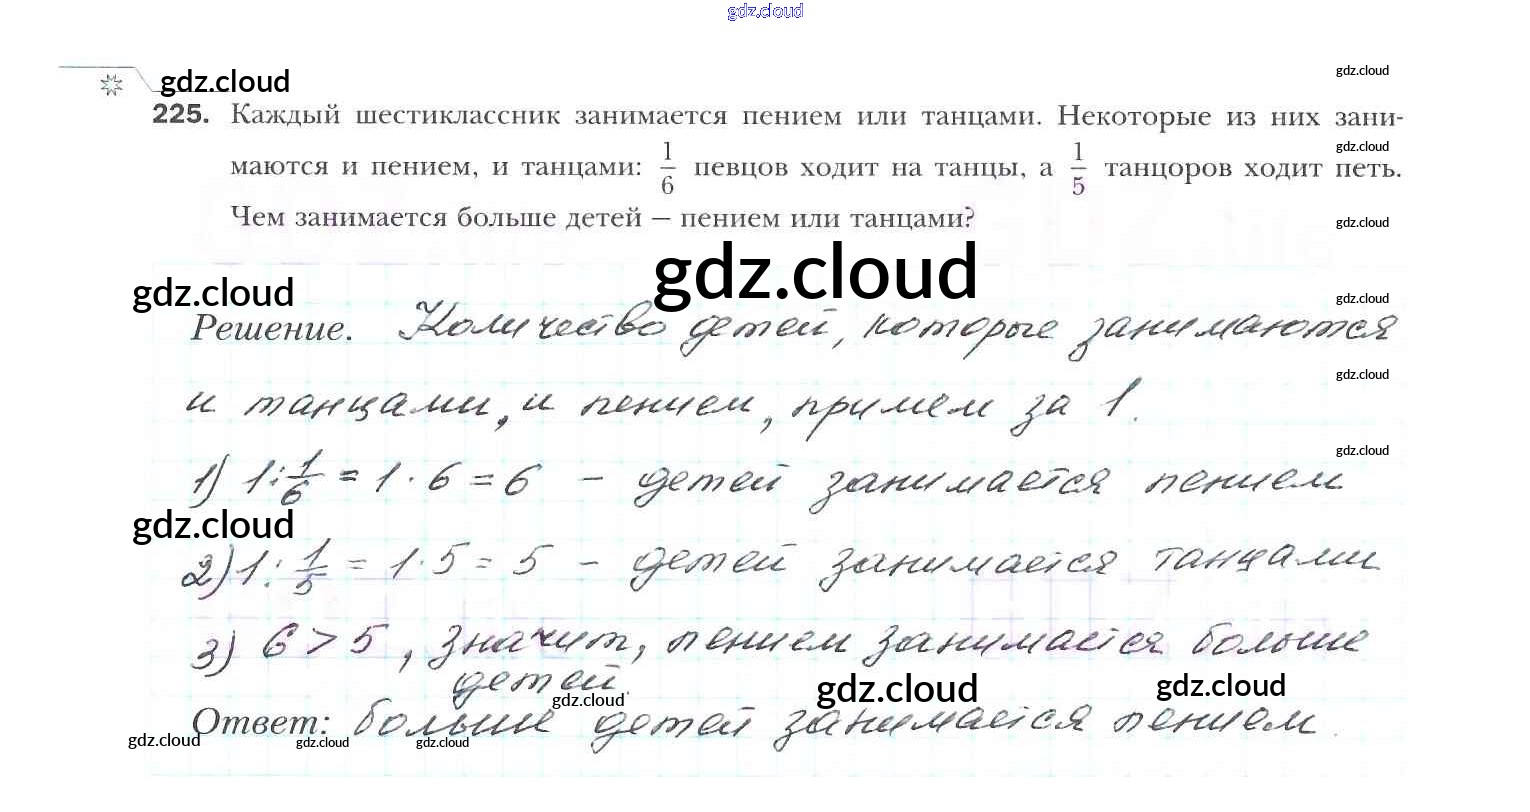 gdz.cloud
gdz.cloud
gdz.cloud
225. Каждый шестиклассник занимается пением или танцами. Некоторые из них зани-
gdz.cloud
маются и пением, и танцами: 1/6 певцов ходит на танцы, а 1/5 танцоров ходит петь.
Чем занимается больше детей – пением или танцами?
gdz.cloud
gdz.cloud
gdz.cloud
gdz.cloud
Решение. Количество детей, которые занимаются
gdz.cloud
и танцами, и пением, примем за 1.
gdz.cloud
1) 1:1/6 = 1·6 = 6 – детей занимается пением
gdz.cloud
2) 1:1/5 = 1·5 = 5 – детей занимается танцами
3) 6 > 5, значит, пением занимается больше
детей.
gdz.cloud
gdz.cloud
gdz.cloud
Ответ: больше детей занимается пением.
gdz.cloud
gdz.cloud
gdz.cloud